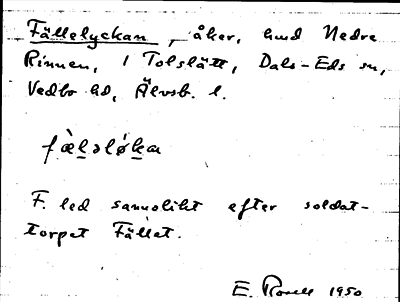 Fällelyckan, åker, hmd Nedre
Rinnen, 1 Tolslätt, Dals-Eds sn,
Vedbo hd, Älvsb. l.
fæ̀lǝlǿka
F. led sannolikt efter soldat-
torpet Fället.
E. Rosell 1950